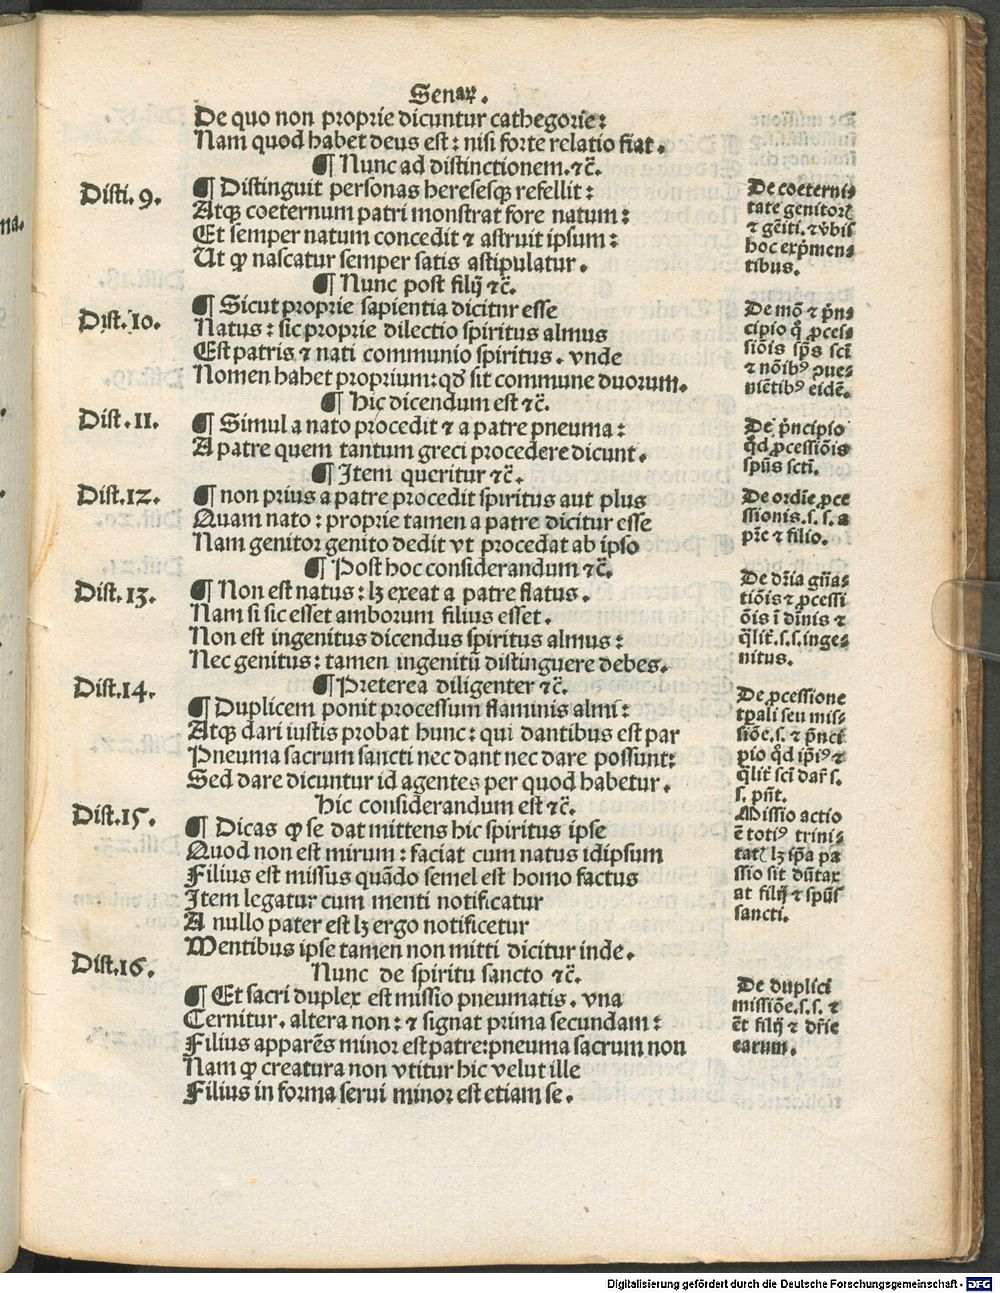 Senaꝝ.
De quo non proprie dicuntur cathegorie:
Nam quod habet deus est: nisi forte relatio fiat.
¶ Nunc ad distinctionem.⁊c̃.
Disti. 9.
¶ Distinguit personas heresesqꝫ refellit:
Atqꝫ coeternum patri monstrat fore natum:
Et semper natum concedit ⁊ astruit ipsum:
Ut ꝙ nascatur semper satis astipulatur.
De coeterni⸗
tate genitorꝭ
⁊ gẽiti. ⁊ v̓bis
hoc exp̃men⸗
tibus.
¶ Nunc post filij ⁊c̃.
Dist. 10.
¶ Sicut proprie sapientia dicitur esse
Natus: sic proprie dilectio spiritus almus
Est patris ⁊ nati communio spiritus. vnde
Nomen habet proprium: qđ sit commune duorum.
De mõ ⁊ p̃n⸗
cipio q̃ ꝓces⸗
siõis sp̃s scĩ
⁊ nõibꝰ ꝓue⸗
niẽtibꝰ eidẽ.
¶ Hic dicendum est ⁊c̃.
Dist. 11.
¶ Simul a nato procedit ⁊ a patre pneuma:
A patre quem tantum greci procedere dicunt.
De p̃ncipio
q̃d ꝓcessiõis
spũs sctĩ.
¶ Item queritur ⁊c̃.
Dist. 12.
¶ non prius a patre procedit spiritus aut plus
Quam nato: proprie tamen a patre dicitur esse
Nam genitor genito dedit vt procedat ab ipso
De ordie ꝓce
ssionis. s. s. a
pr̃e ⁊ filio.
¶ Post hoc considerandum ⁊c̃.
Dist. 13.
¶ Non est natus: lꝫ exeat a patre flatus.
Nam si sic esset amborum filius esset.
Non est ingenitus dicendus spiritus almus:
Nec genitus: tamen ingenitũ distinguere debes.
De dr̃ia gña⸗
tiõis ⁊ ꝓcessi
õis ĩ diĩnis ⁊
q̃lit̃. s. s. inge⸗
nitus.
¶ Preterea diligenter ⁊c̃.
Dist. 14.
¶ Duplicem ponit processum flaminis almi:
Atqꝫ dari iustis probat hunc: qui dantibus est par
Pneuma sacrum sancti nec dant nec dare possunt:
Sed dare dicuntur id agentes per quod habetur.
De ꝓcessione
tp̃ali seu mis⸗
siõe. s. ⁊ p̃nci
pio q̃d ip̃iꝰ ⁊
q̃lit̃ scĩ dar̃ s.
s. pñt.
Hic considerandum est ⁊c̃.
Dist. 15.
¶ Dicas ꝙ se dat mittens hic spiritus ipse
Quod non est mirum: faciat cum natus idipsum
Filius est missus quãdo semel est homo factus
Item legatur cum menti notificatur
A nullo pater est lꝫ ergo notificetur
Mentibus ipse tamen non mitti dicitur inde.
Missio actio
ẽ totiꝰ trini⸗
tatꝭ lꝫ ip̃a pa
ssio sit dũtax
at filij ⁊ spũs
sancti.
Nunc de spiritu sancto ⁊c̃.
Dist. 16.
¶ Et sacri duplex est missio pneumatis. vna
Cernitur. altera non: ⁊ signat prima secundam:
Filius apparẽs minor est patre: pneuma sacrum non
Nam ꝙ creatura non vtitur hic velut ille
Filius in forma serui minor est etiam se.
De duplici
missiõe. s. s. ⁊
ẽt filij ⁊ dr̃ie
earum.
Digitalisierung gefördert durch die Deutsche Forschungsgemeinschaft - DFG